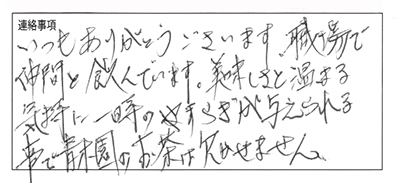 連絡事項
いつもありがとうございます。職場で
仲間と飲んでいます。美味しさと温まる
気持に一時のやすらぎが与えられる
事で青木園のお茶は欠かせません。